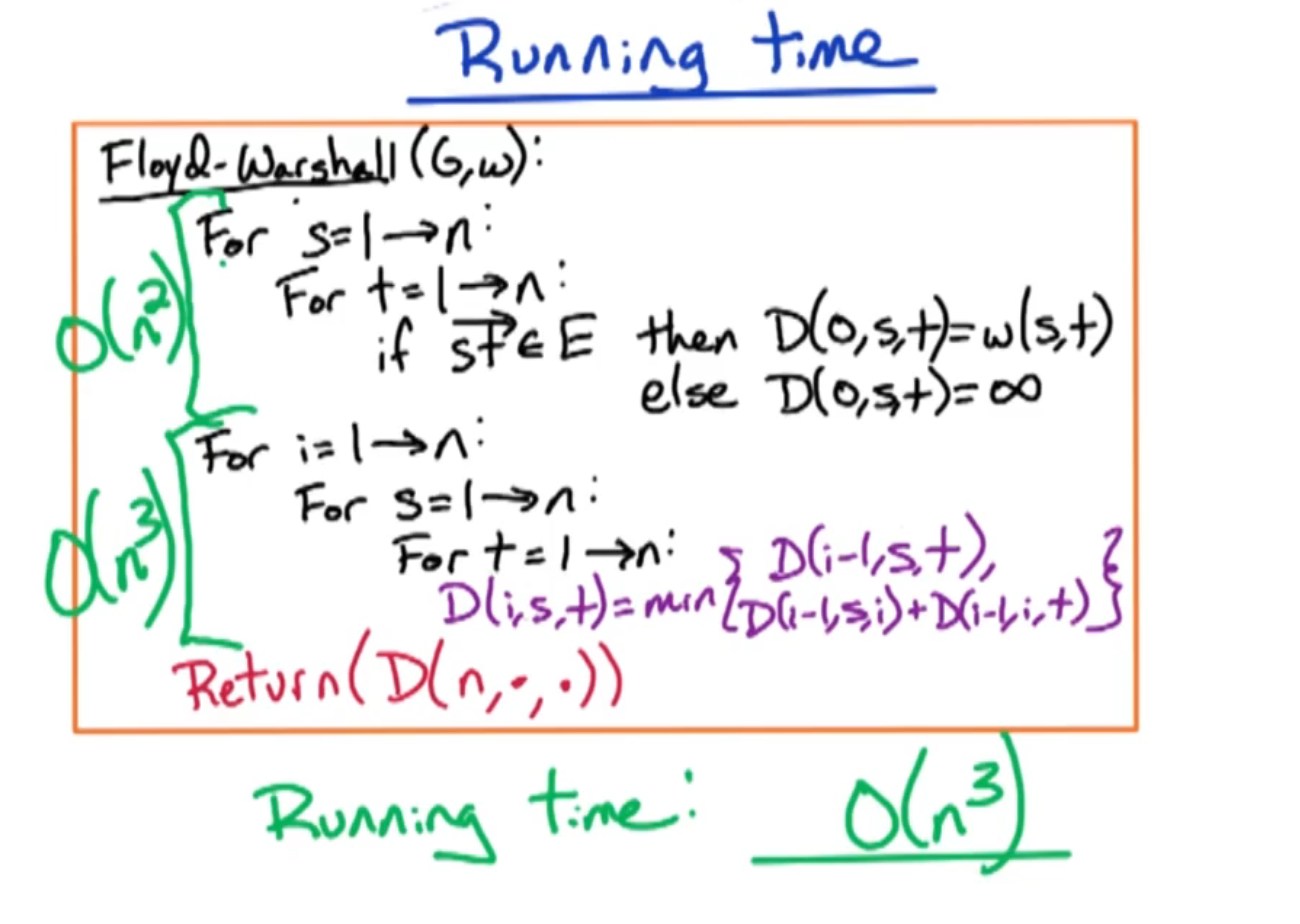 Running time
Floyd-Warshall(G,w):
For s=1→n:
For t=1→n:
O(n²)
if st→∈E then D(0,s,t)=w(s,t)
else D(0,s,t)=∞
For i=1→n:
For s=1→n:
O(n³)
For t=1→n:
D(i,s,t)=min{D(i-1,s,t),
D(i-1,s,i)+D(i-1,i,t)}
Return(D(n,·,·))
Running time: O(n³)